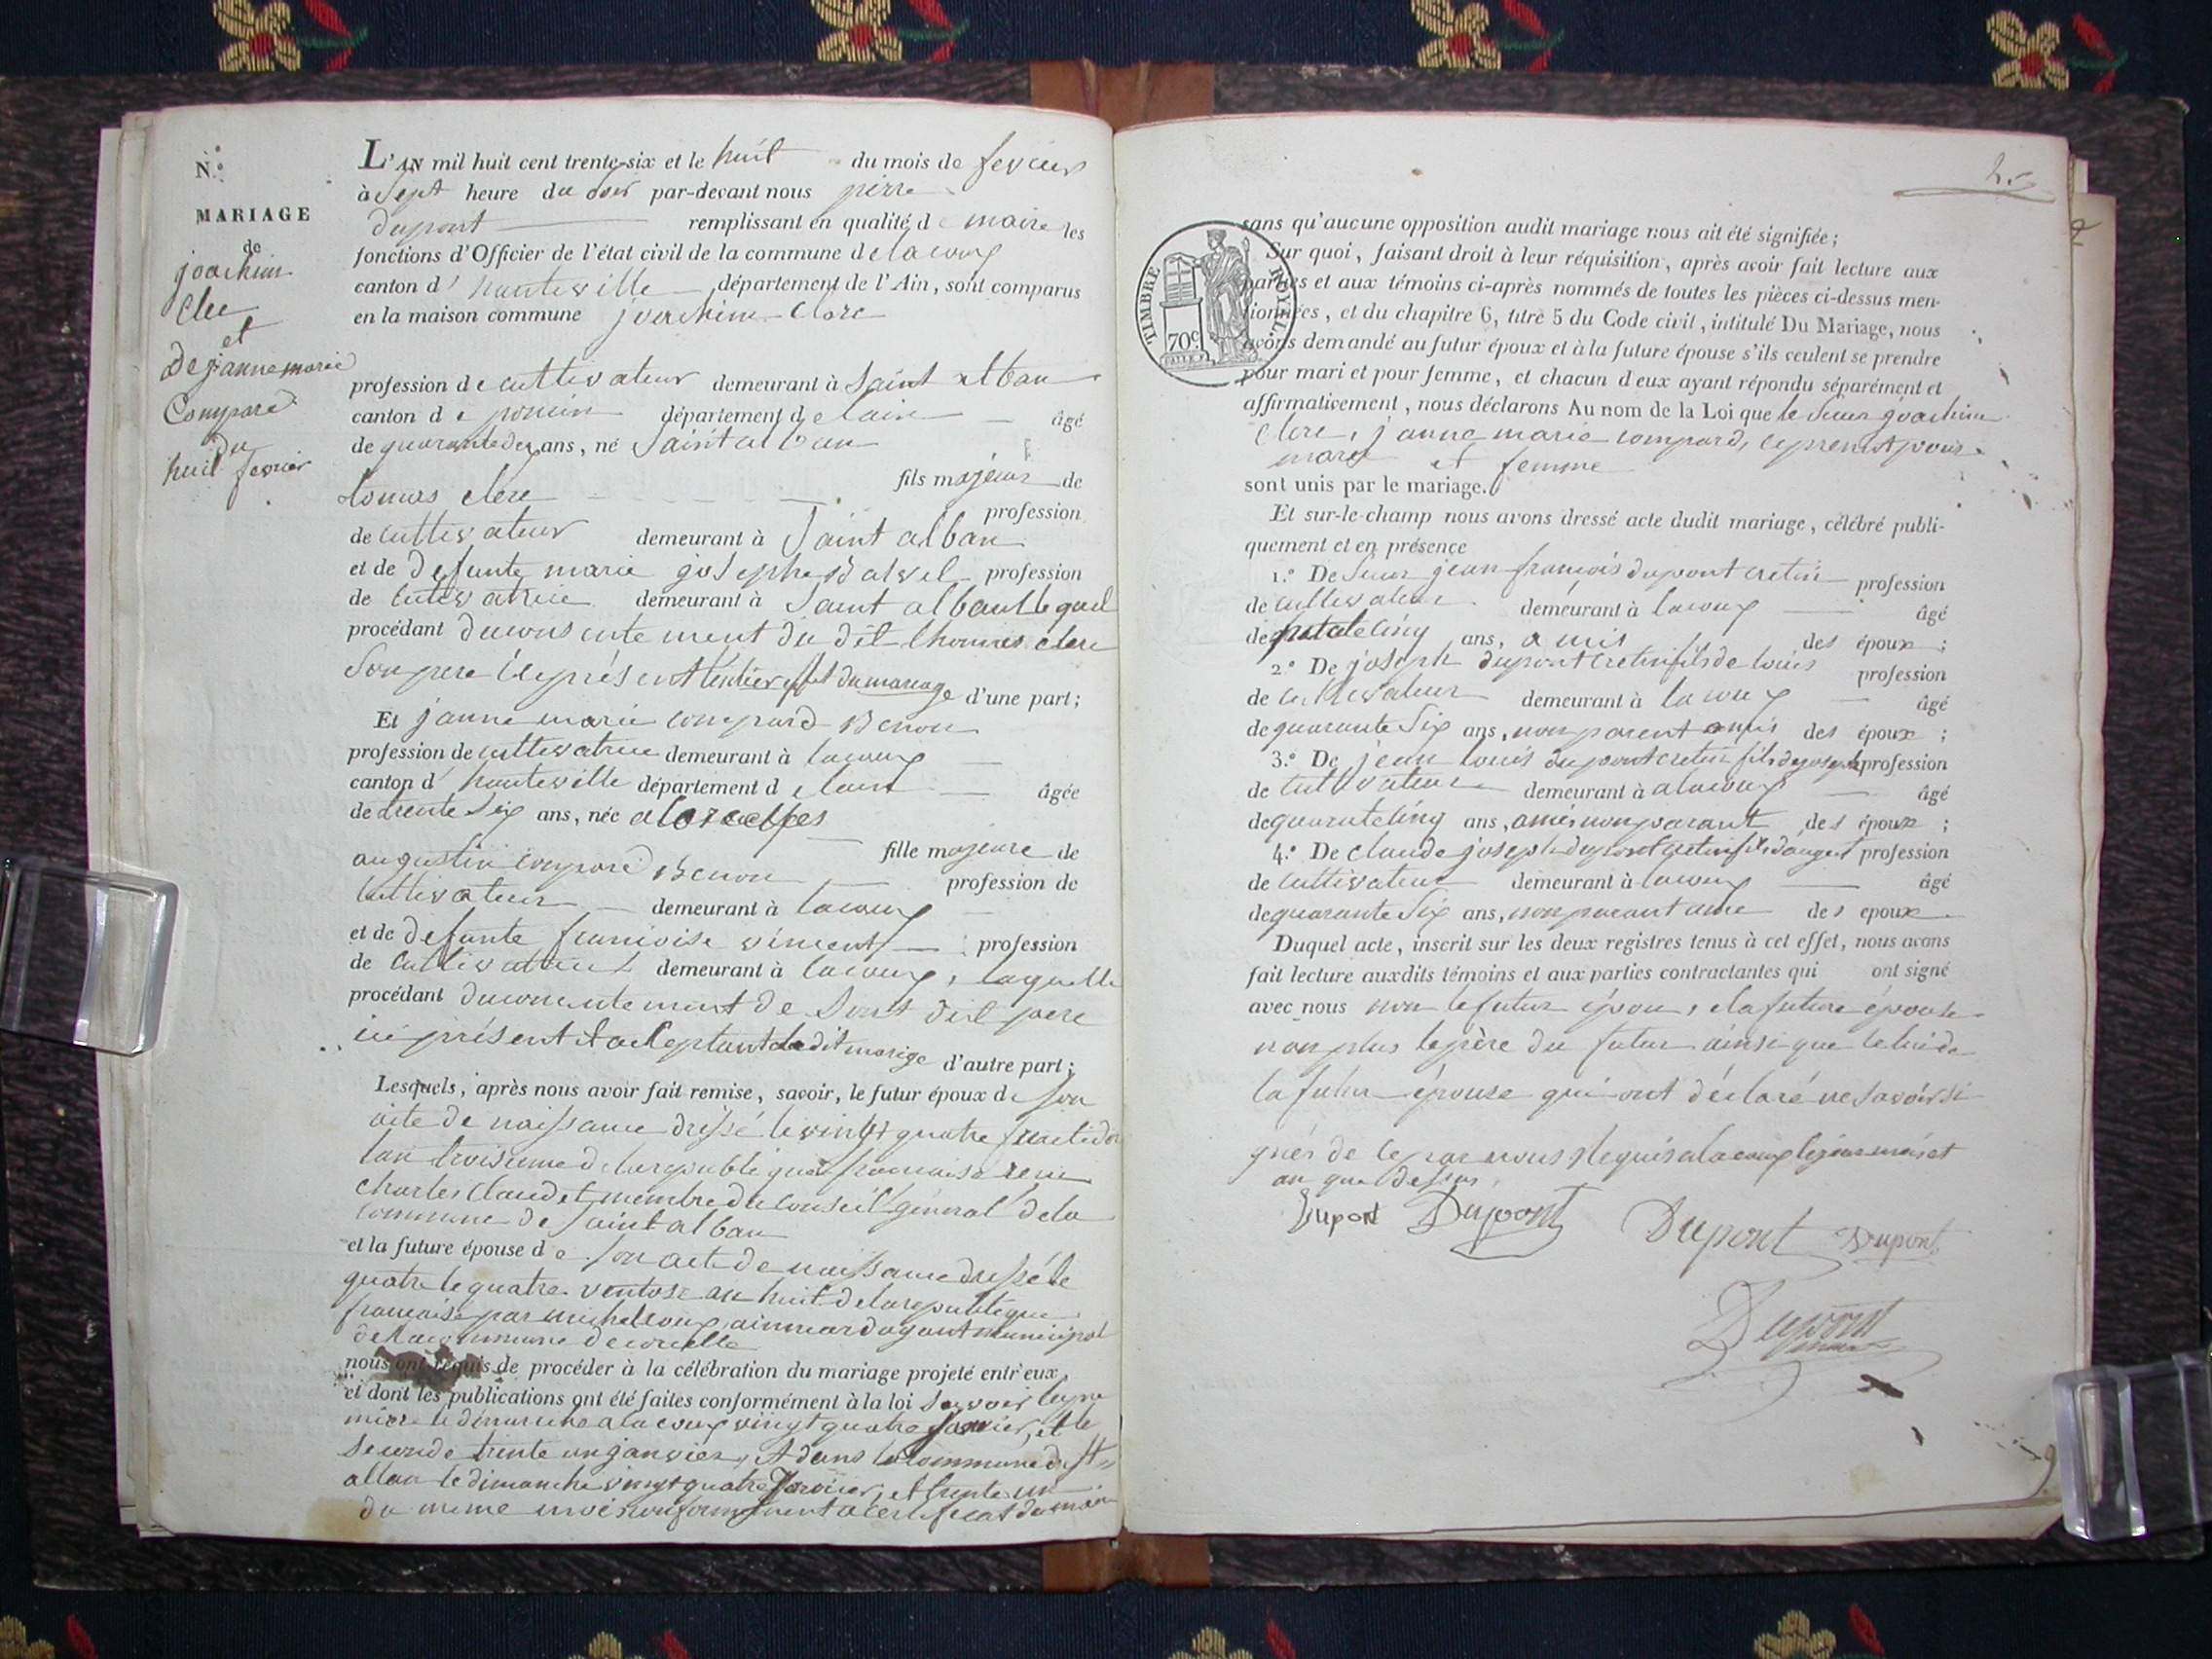 N.°
MARIAGE
de
joachim
Clec
et
de janne marie
Compard
du
huil fevrier
L'AN mil huit cent trente-six et le huit du mois de fevrier
à Sept heure du soir par-devant nous pierre
dupont remplissant en qualité de maire les
fonctions d'Officier de l'état civil de la commune de lacoux
canton d' hauteville département de l'Ain, sont comparus
en la maison commune joachim Clerc
profession de cultivateur demeurant à Saint alban
canton de poncin département de lain âgé
de quarante deux ans, né Saint alban
fils majeur de
tomas clerc profession
de cultivateur demeurant à Saint alban
et de defunte marie josephe profession
de demeurant à Saint alban lequel
procédant du consentement du dit thomas clerc
Son pere ici présent du mariage d'une part;
Et janne marie compard Benon
profession de cultivatrice demeurant à lacoux
canton d' hauteville département de lain âgée
de trente Six ans, née a
fille majeure de
augustin compard Benon profession de
Cultivateur demeurant à lacoux
et de defunte francoise vincent profession
de cultivatrice demeurant à lacoux, laquelle
procédant du consentement de Sont dit pere
ici présent et acceptant ledit marige d'autre part;
Lesquels, après nous avoir fait remise, savoir, le futur époux de son
acte de naissance dréssé le vingt quatre
lan troisieme de la republique francaise
charles Claudet membre du conseil général de la
commune de Saint alban
et la future épouse de son acte de naissance dressé le
quatre le quatre ventose an huit de la republique
francaise par michel municipal
de la commune de corcelle
nous ont requis de procéder à la célébration du mariage projeté entr'eux
et dont les publications ont été faites conformément à la loi Savoir la pre
miere le dimanche a lacoux vingt quatre Janvier, et le
Seconde trente un janvier, et dans la commune de St
alban le dimanche vingt quatre Janvier, et trente un
du meme moi conformément a certificat du maire
sans qu'aucune opposition audit mariage nous ait été signifiée;
Sur quoi, faisant droit à leur réquisition, après avoir fait lecture aux
parties et aux témoins ci-après nommés de toutes les pièces ci-dessus men-
tionnées, et du chapitre 6, titre 5 du Code civil, intitulé Du Mariage, nous
avons demandé au futur époux et à la future épouse s'ils veulent se prendre
pour mari et pour femme, et chacun d'eux ayant répondu séparément et
affirmativement, nous déclarons Au nom de la Loi que le Sieur joachim
Clerc, janne marie compard, ce prenent pour
mary et femme
sont unis par le mariage.
Et sur-le-champ nous avons dressé acte dudit mariage, célébré publi-
quement et en présence
1.° De Sieur jean francois dupont cretin profession
de cultivateur demeurant à lacoux âgé
de ans, amis des époux;
2.° De joseph dupont cretin fils de louis profession
de cultivateur demeurant à lacoux âgé
de quarante Six ans, non parent amis des époux;
3.° De jean louis dupont cretin fils de joseph profession
de cultivateur demeurant à alacoux âgé
de quarante cinq ans, amis non parant des époux;
4.° De claude joseph dupont cretin fils profession
de cultivateur demeurant à lacoux âgé
de quarante Six ans, non parant ame des époux.
Duquel acte, inscrit sur les deux registres tenus à cet effet, nous avons
fait lecture auxdits témoins et aux parties contractantes qui ont signé
avec nous non le futur époux, la future épouse
non plus le père du futur ainsi que celui de
la futur épouse qui ont déclaré ne savoir si
gner de ce par nous requis a lacoux les jour mois et
an que dessus.
Dupont Dupont Dupont Dupont
Dupont
TIMBRE ROYAL.
70c